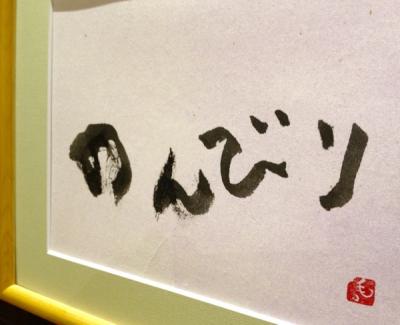 のんびり